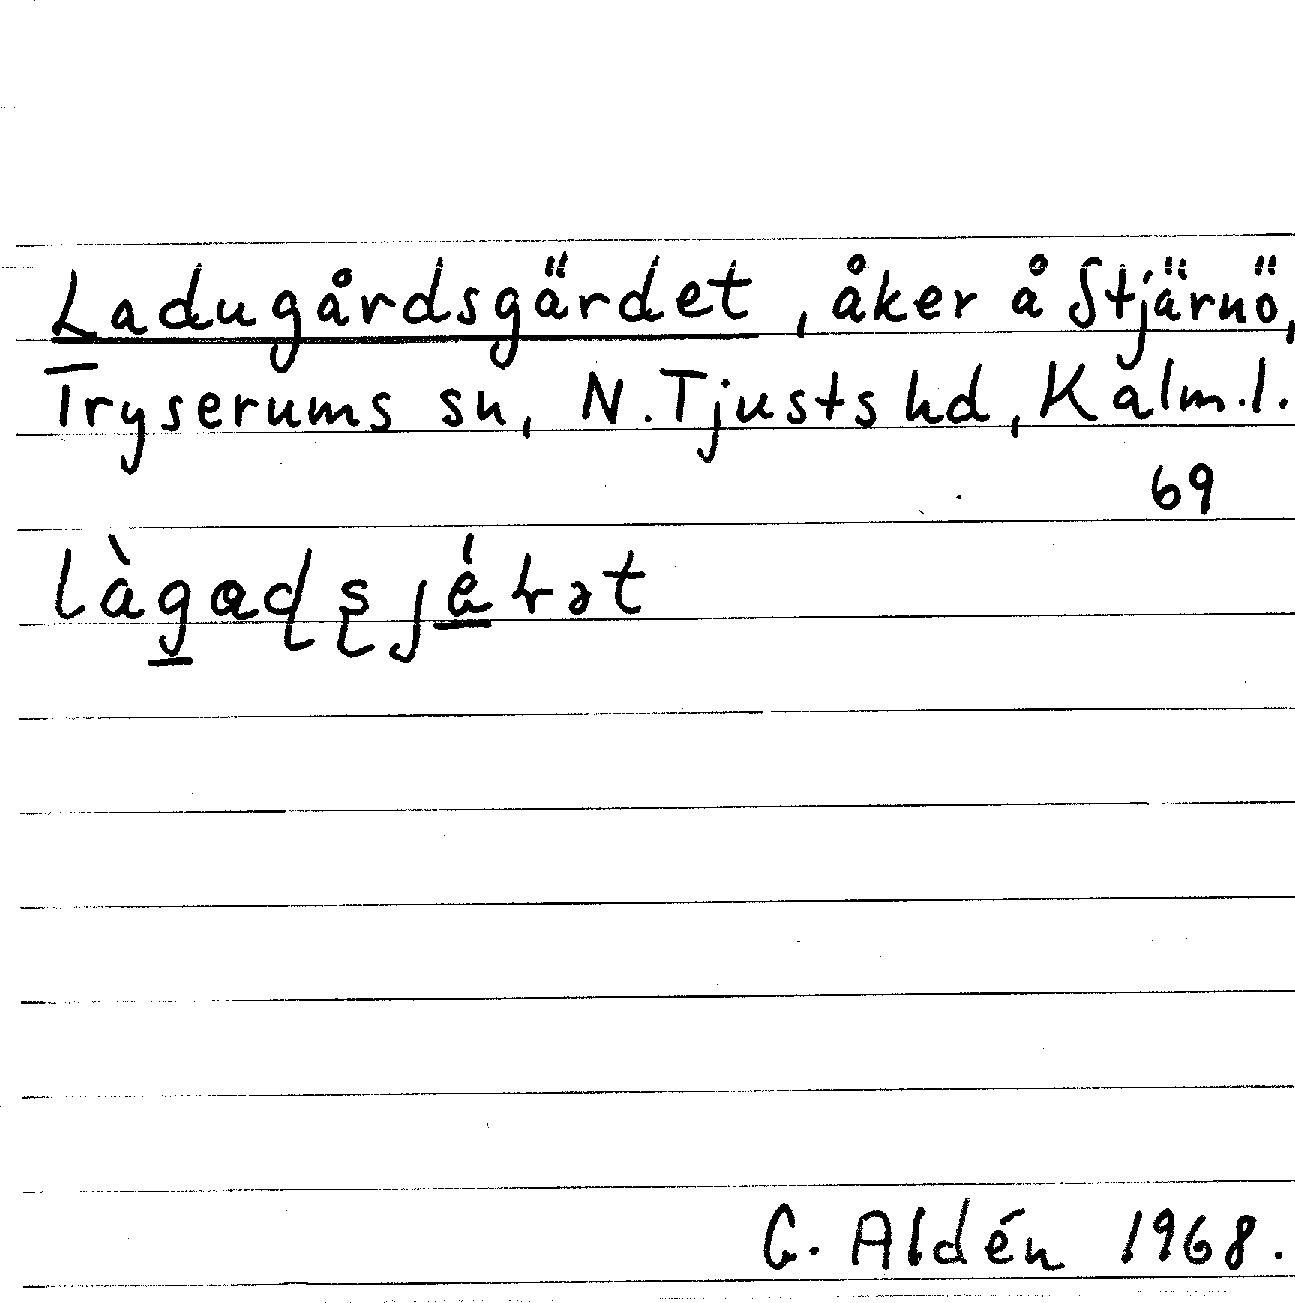 Ladugårdsgärdet, åker å Stjärnö,
Tryserums sn, N. Tjusts hd, Kalm.l.
69
G. Aldén 1968.